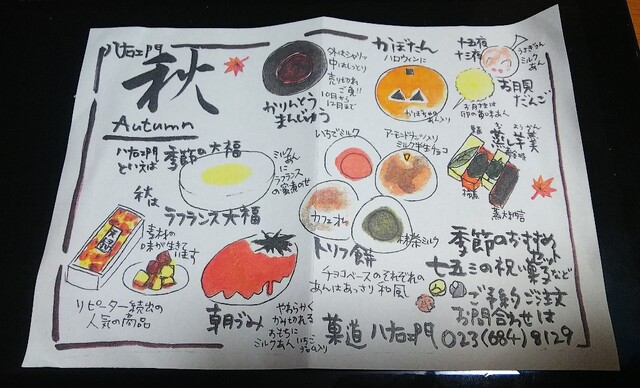 八右エ門
秋
Autumn
外はシャリッ
中はしっとり
売り切れ
ご免!!
10月から
12月まで
かりんとう
まんじゅう
かぼたん
ハロウィンに
かぼちゃあん入り
十五夜
十三夜
うさぎさん
ミルク
あん
お月さまは
卵の黄味あん
お月見
だんご
八右エ門
といえば
季節の大福
秋は
ラフランス大福
ミルク
あん
に
ラフランス
の蜜煮のせ
いちごミルク
アーモンドナッツ入り
ミルク半生チョコ
カフェオレ
抹茶ミルク
トリフ餅
チョコベースのそれぞれの
あんはあっさり和風
蒸し羊羹
素材の
味が生きて
います
リピーター続出の
人気の商品
朝月づみ
やわらかく
かみ切れる
おもちに
ミルクあん
季節のおすすめ
セット
七五三の祝い菓子など
ご予約ご注文
お問合わせは
菓道 八右エ門 023(684)8129